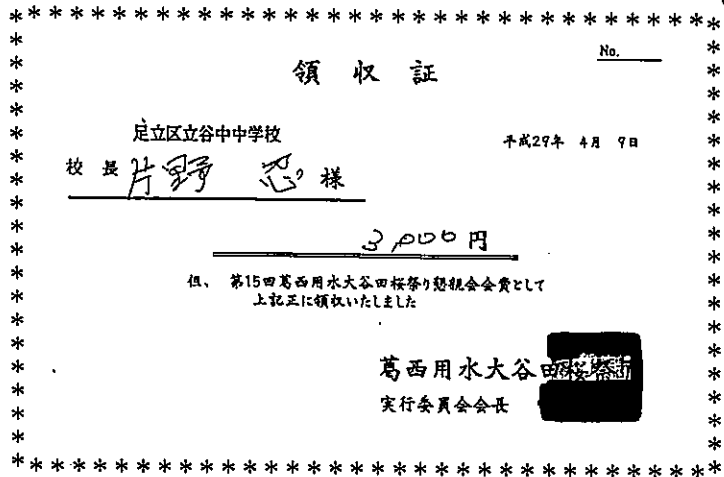 領収証
No.
足立区立谷中中学校
平成29年 4月 9日
校長 片野 忍 様
3,000円
但、 第15回葛西用水大谷田桜祭り懇親会会費として
上記正に領収いたしました
葛西用水大谷田桜祭り
実行委員会会長